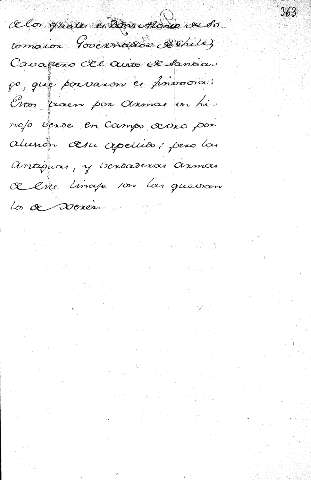 363
de los quales es Don Alonso de So-
tomaior Governador de Chile, y
Cavallero del avito de Santia-
go, que provaron es Hinojosa:
Estos traen por Armas un hi-
nojo verde en Campo de oro por
alusion de su apellido; pero las
Antiguas, y verdaderas Armas
de este linaje son las que avan
los de